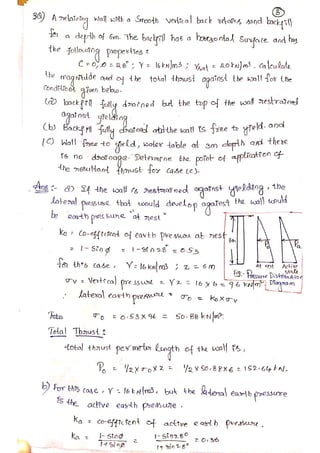 8
38) A retaining wall with a Smooth vertical back retains sand backfill
for a depth of 6m. The backfill has a horizontal Surface and has
the following properties :
C = 0, Ø = 28° ; γ = 16 kN/m3 ; γsat = 20 kN/m3. Calculate
the magnitude and of the total thrust against the wall for the
conditions given below.
(a) backfill fully drained but the top of the wall restrained
against yielding
(b) Backfill fully drained and the wall is free to yield. and
(c) Wall free to yield, water table at 3m depth and there
is no drainage. Determine the point of application of
the resultant thrust for case (c).
Ans:- a) If the wall is restrained against yielding, the
lateral pressure that would develop against the wall would
be earth pressure "at rest"
Ko = Co-efficient of earth pressure at rest
= 1 - Sin Ø = 1 - Sin 28° = 0.53
for this case, γ = 16 kN/m3 ; z = 6m
σv = Vertical pressure = γz = 16 x 6 = 96 kN/m2
∴ lateral earth pressure = σo = Ko x σv
At rest Active state
Fig:- Pressure Distribution Diagram
σo = 0.53 x 96 = 50.88 kN/m2.
Total Thrust :
total thrust per meter length of the wall is,
Po = 1/2 x σo x z = 1/2 x 50.88 x 6 = 152.64 kN.
b) For this case, γ = 16 kN/m3, but the lateral earth pressure
is the active earth pressure.
Ka = co-efficient of active earth pressure.
Ka = 1 - Sin Ø / 1 + Sin Ø = 1 - Sin 28° / 1 + Sin 28° = 0.36